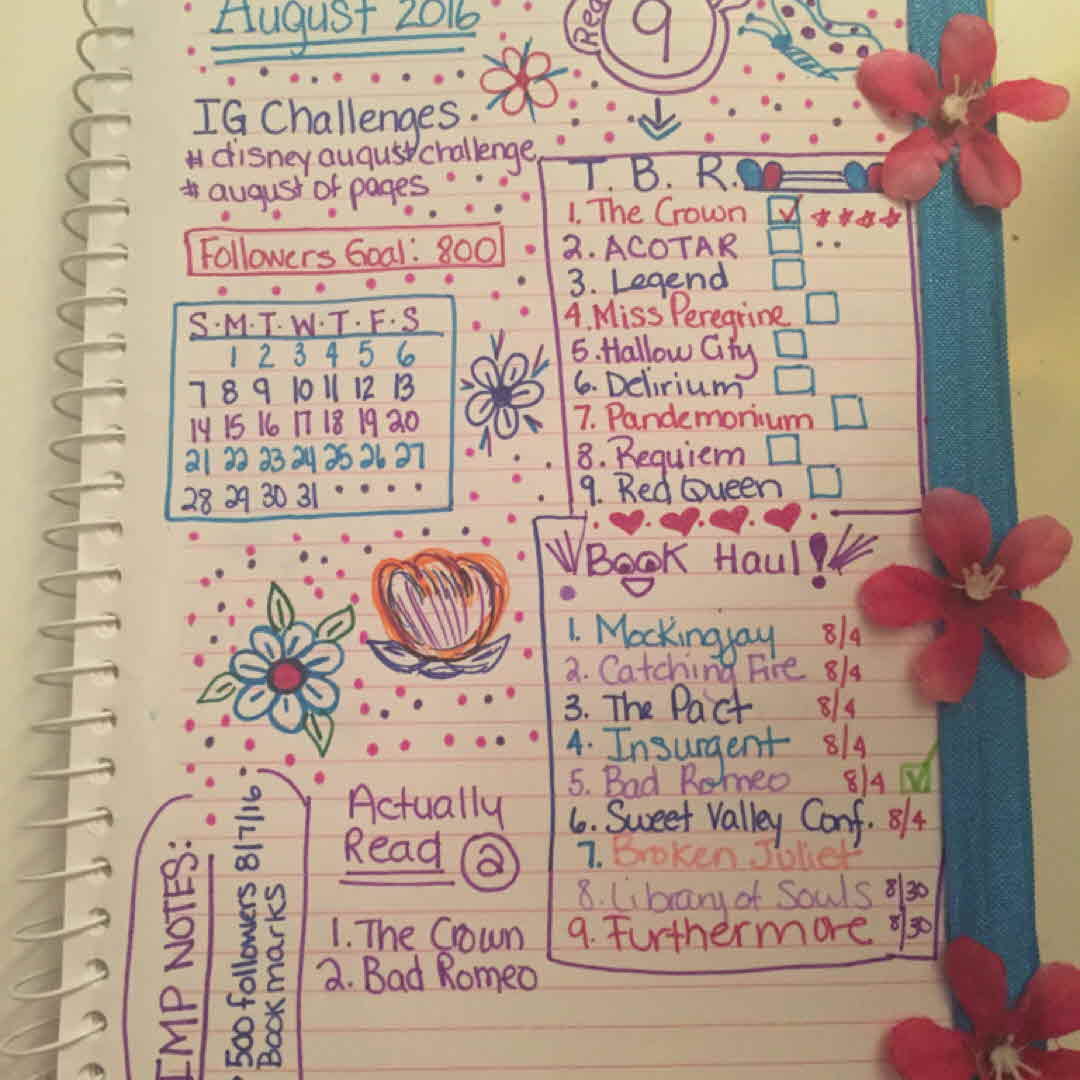 August 2016
Rea
9
IG Challenges
# disney august challenge
# august of pages
Followers Goal: 800
S·M·T·W·T·F·S
1 2 3 4 5 6
7 8 9 10 11 12 13
14 15 16 17 18 19 20
21 22 23 24 25 26 27
28 29 30 31
T. B. R.
1. The Crown
2. ACOTAR
3. Legend
4. Miss Peregrine
5. Hallow City
6. Delirium
7. Pandemonium
8. Requiem
9. Red Queen
Book Haul!
1. Mockingjay 8/4
2. Catching Fire 8/4
3. The Pact 8/4
4. Insurgent 8/4
5. Bad Romeo 8/4
6. Sweet Valley Conf. 8/4
7. Broken Juliet
8. Library of Souls 8/30
9. Furthermore 8/30
IMP NOTES:
500 followers 8/7/16
Bookmarks
Actually
Read 2
1. The Crown
2. Bad Romeo